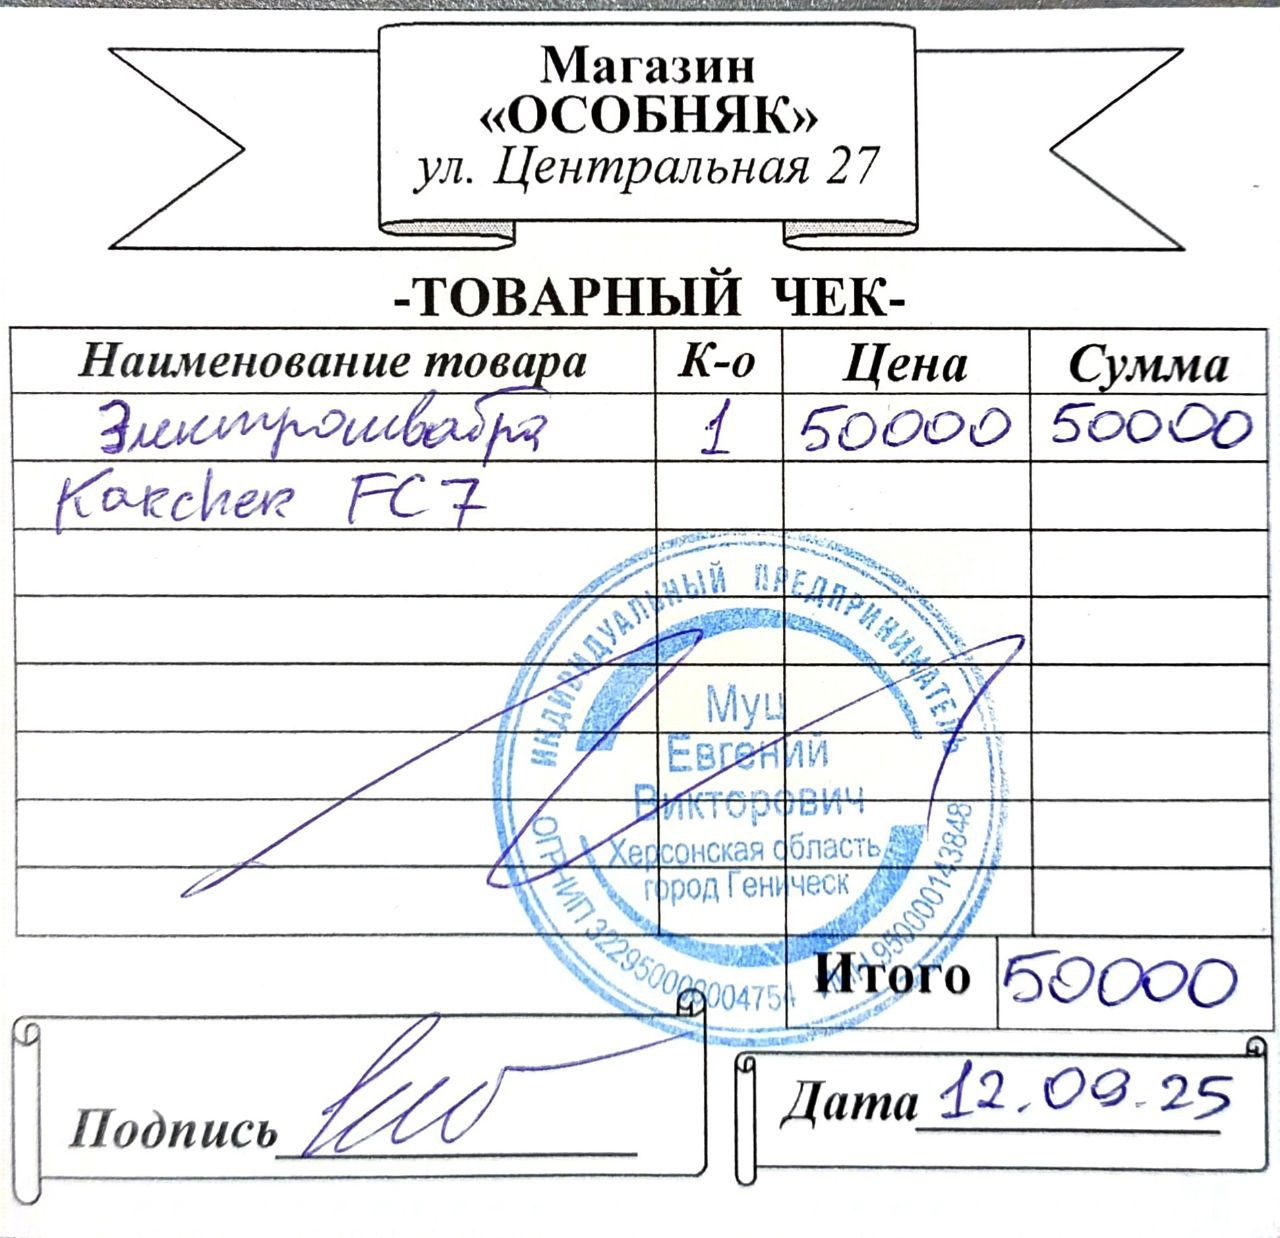 Магазин
«ОСОБНЯК»
ул. Центральная 27
-ТОВАРНЫЙ ЧЕК-
Наименование товара К-о Цена Сумма
Электрошвабра 1 50000 50000
Karcher FC7
ИНДИВИДУАЛЬНЫЙ ПРЕДПРИНИМАТЕЛЬ
Муц
Евгений
Викторович
Херсонская область
город Геническ
ОГРНИП 322950000004754 ИНН 9500000143848
Итого 50000
Подпись
Дата 12.09.25